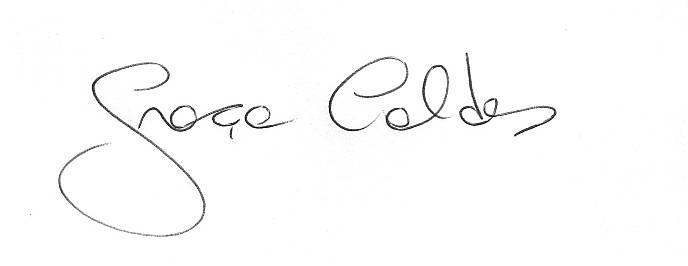 Graça Caldas